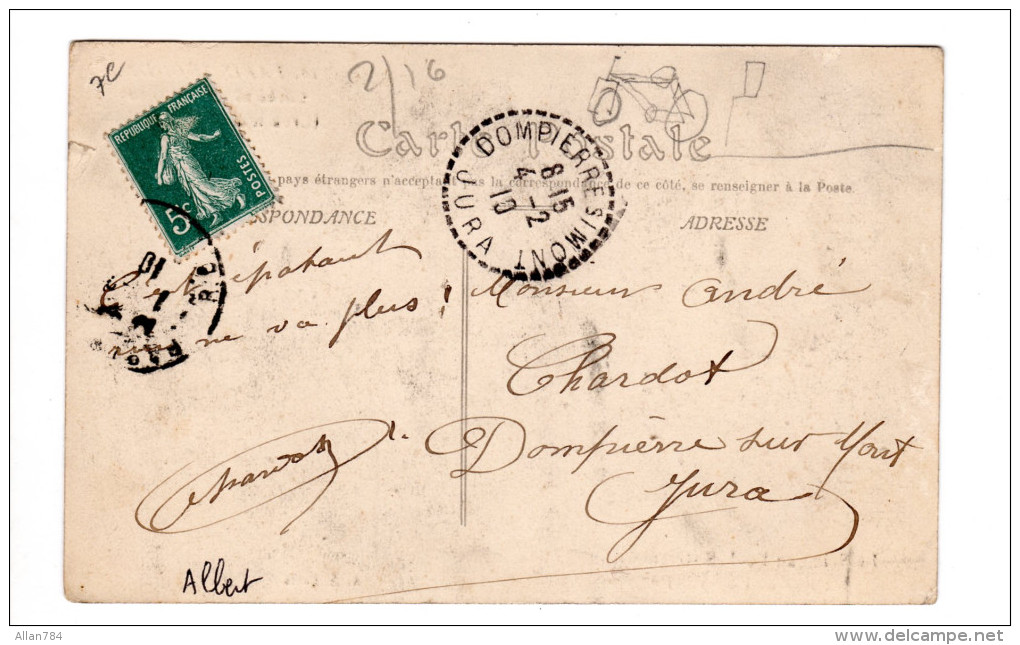 7c
2/16
RÉPUBLIQUE FRANÇAISE
POSTES
5c
Carte Postale
pays étrangers n'acceptant pas la correspondance de ce côté, se renseigner à la Poste
SPONDANCE
ADRESSE
DOMPIERRE S/ MONT
8-15
4-2
10
JURA
C'est épatant
rien ne va plus !
Monsieur André
Chardot
Dompierre sur Mont
Jura
Chardot
Albert
Allan784
www.delcampe.net